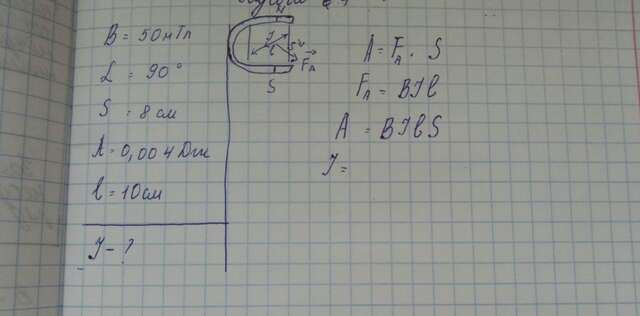 B = 50 мТл
L = 90°
S = 8 см
A = 0,004 Дж
l = 10 см
I - ?
I
l
F_A
S
A = F_A · S
F_A = BIl
A = BIlS
I =